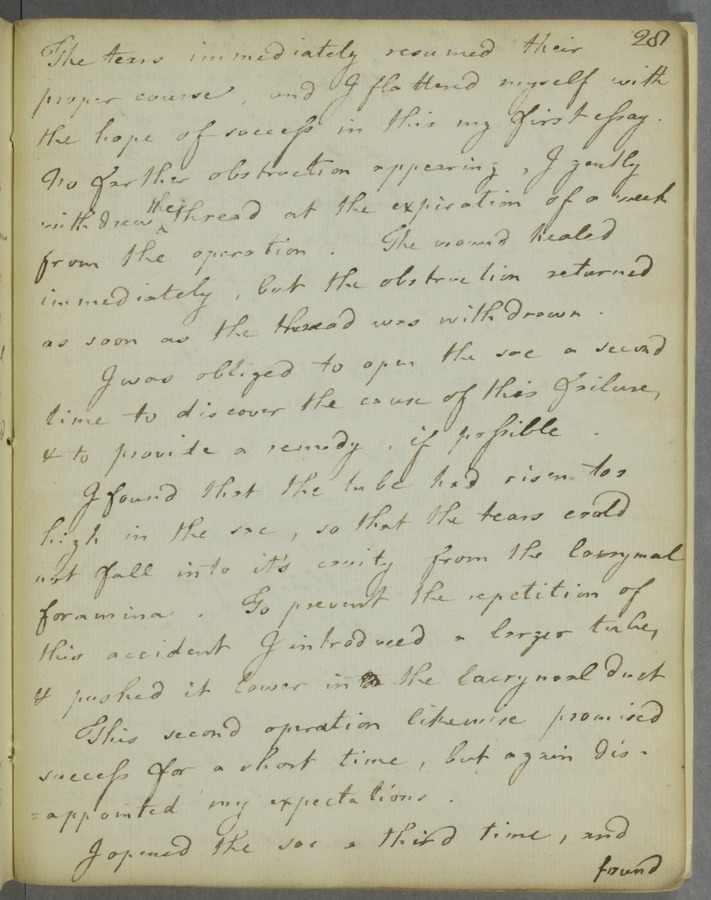 28
The tears immediately resumed their
proper course, and I flattered myself with
the hope of success in this my first essay.
No farther obstruction appearing, I gently
withdrew the thread at the expiration of a week
from the operation. The wound healed
immediately, but the obstruction returned
as soon as the thread was withdrawn.
I was obliged to open the sac a second
time to discover the cause of this failure,
& to provide a remedy, if possible.
I found that the tube had risen too
high in the sac, so that the tears could
not fall into it's cavity from the lacrymal
foramina. To prevent the repetition of
this accident I introduced a larger tube,
& pushed it lower in the lacrymal duct
This second operation likewise promised
success for a short time, but again dis-
=appointed my expectations.
I opened the sac a third time, and
found